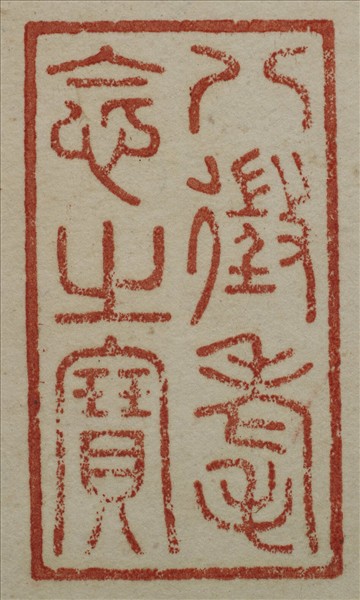 八徵耄
念之寶